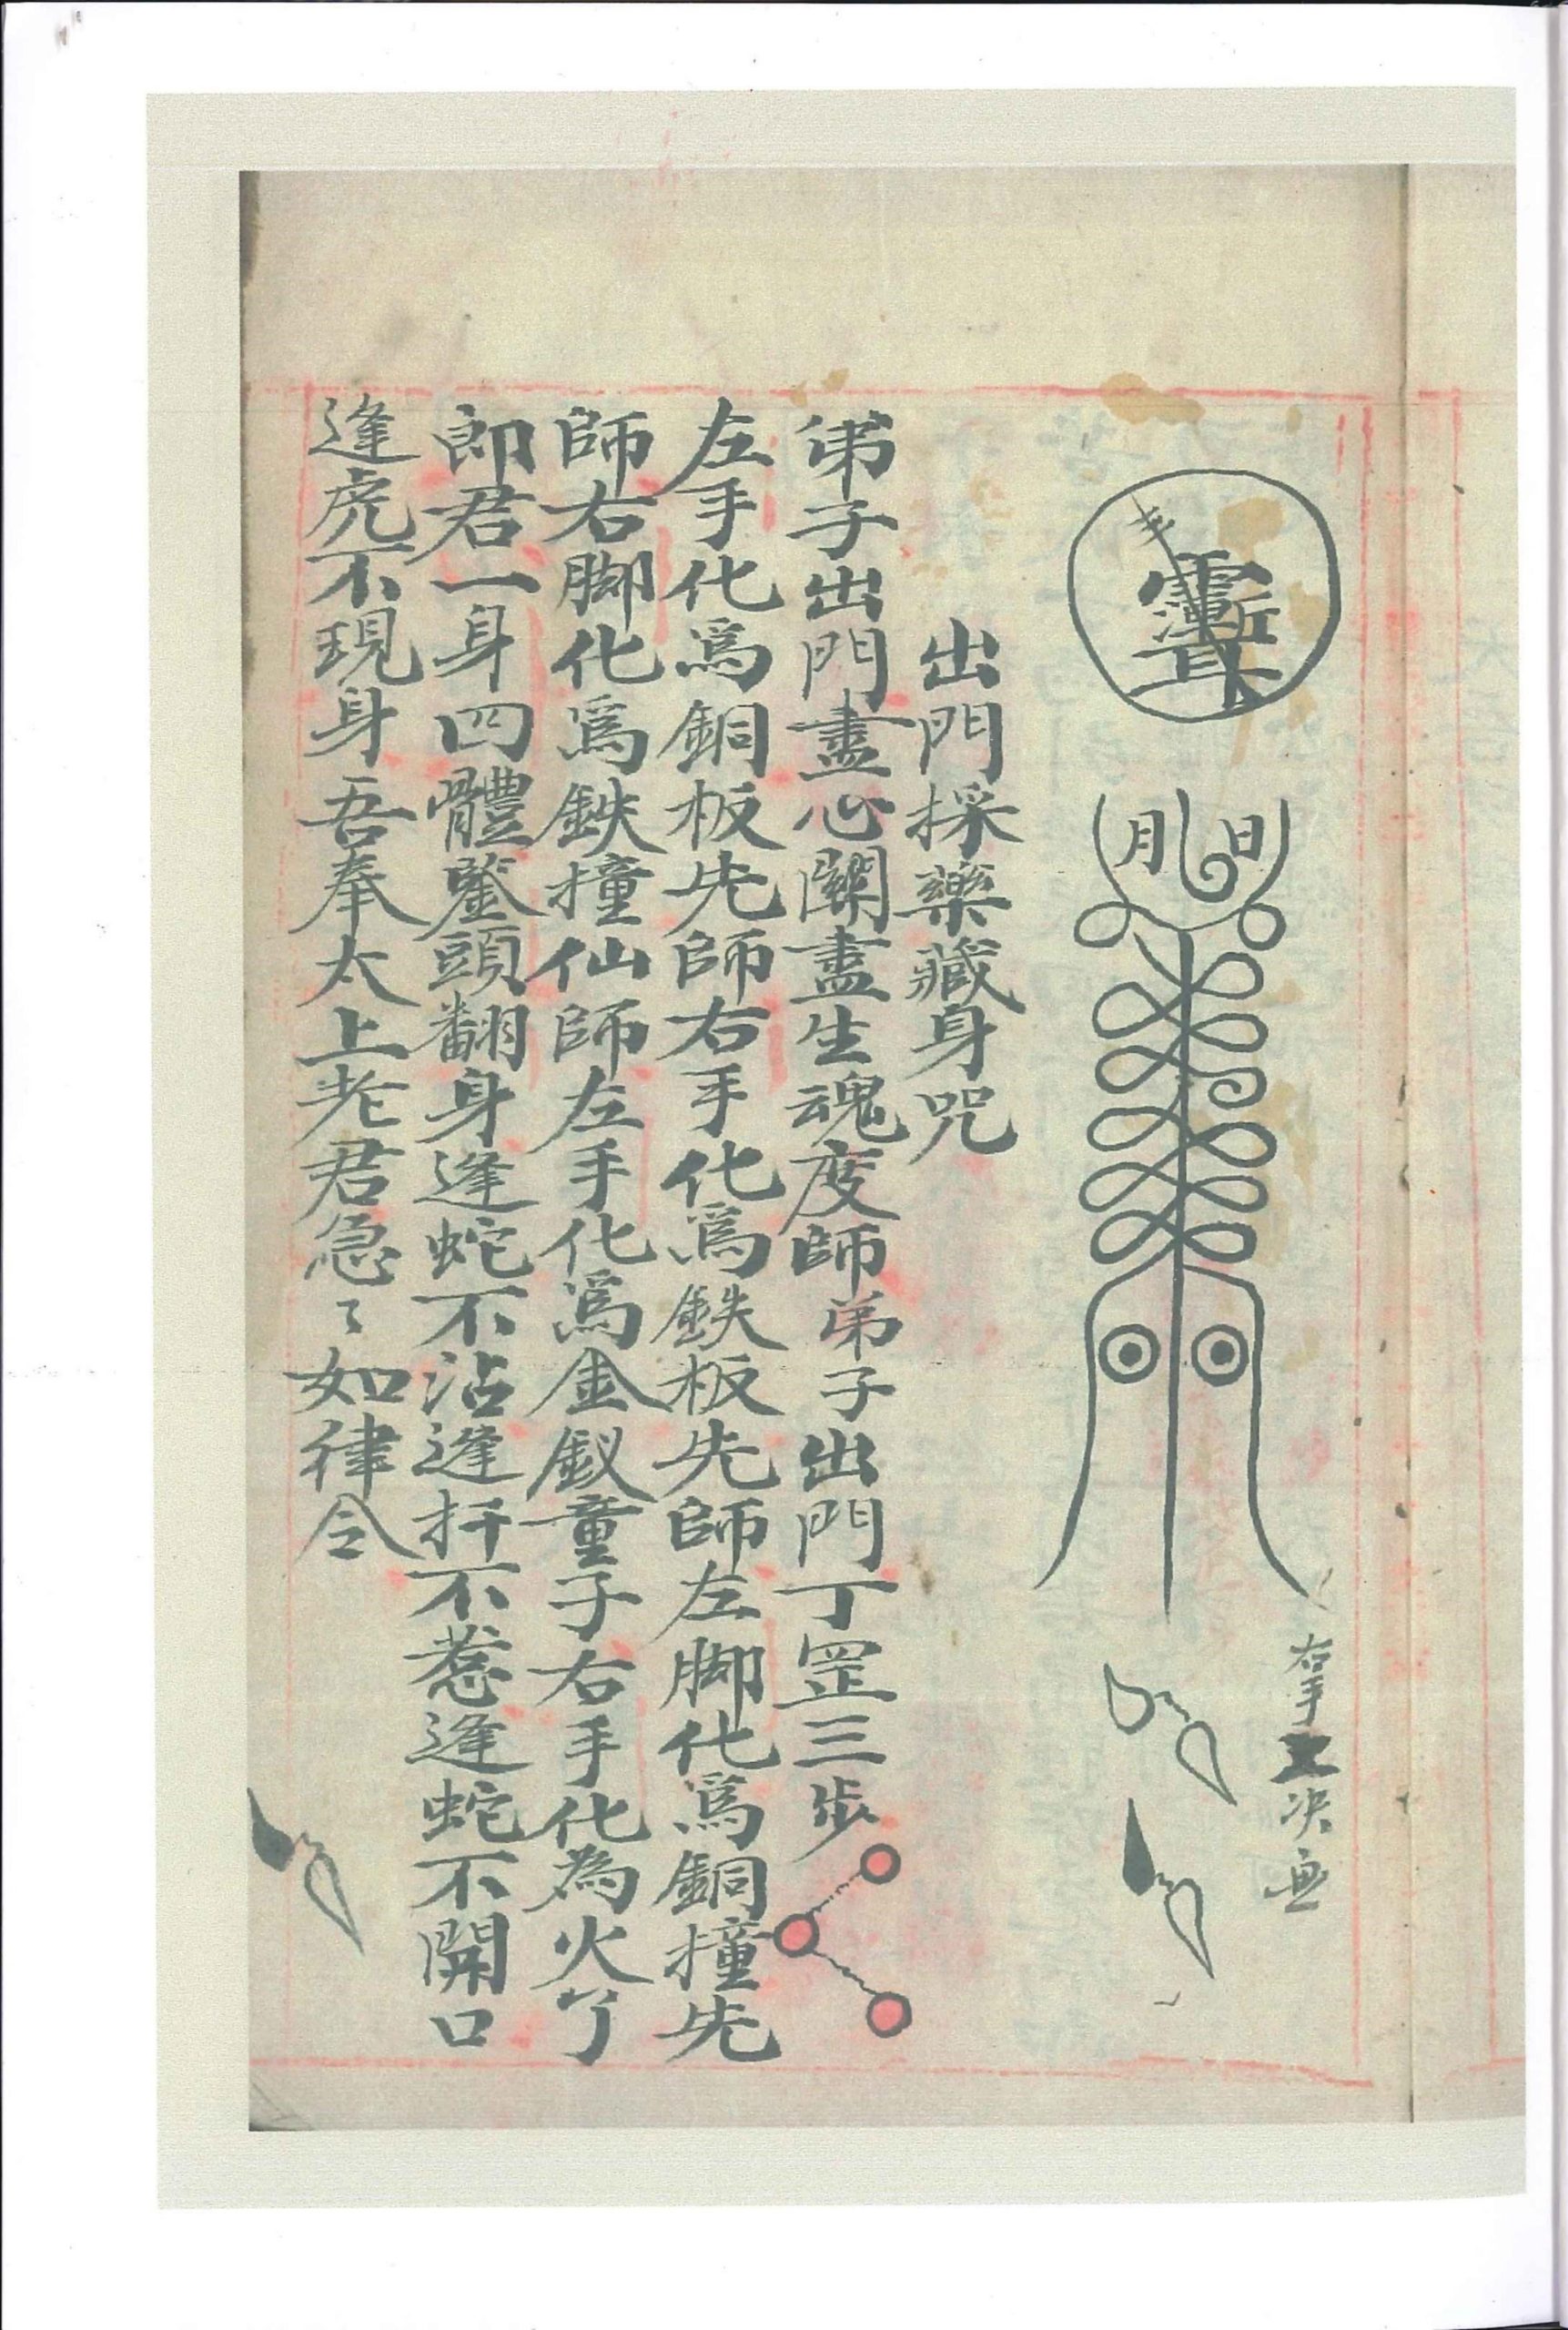 月 日
右手拿 决画
出門採藥藏身咒
弟子出門盡心關盡生魂度師弟子出門丁罡三步
左手化爲銅板先師右手化爲鉄板先師左脚化爲銅撞先
師右脚化爲鉄撞仙師左手化爲金釵童子右手化為火了
郎君一身四體鏨頭翻身逢蛇不沾逢扞不惹逢蛇不開口
逢虎不現身吾奉太上老君急〻如律令